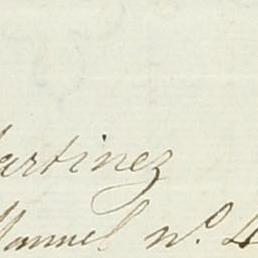 Martinez
Manuel nº. 4